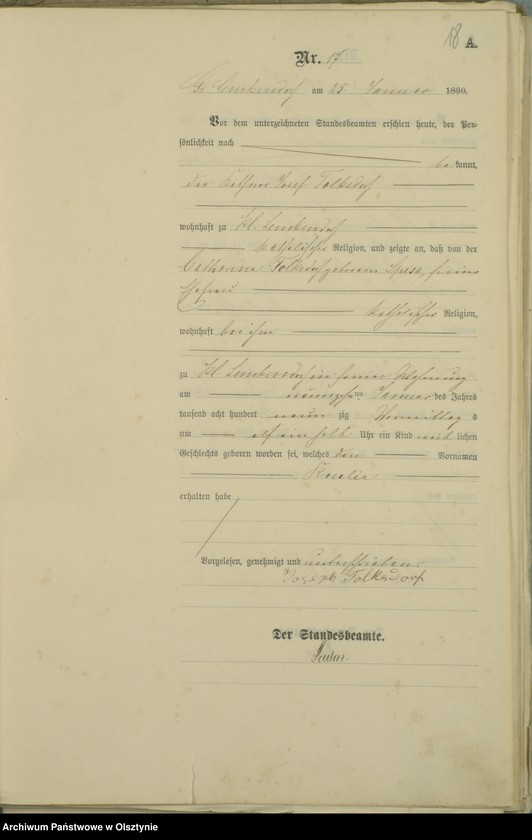 18 A.
Nr. 17.
Gr. Lemkendorf am 25. Januar 1890.
Vor dem unterzeichneten Standesbeamten erschien heute, der Per-
sönlichkeit nach
be kannt,
der Josef Tolksdorf
wohnhaft zu Kl. Lemkendorf
katholischer Religion, und zeigte an, daß von der
Catharina Tolksdorf gebornen seiner
Ehefrau
katholischer Religion,
wohnhaft bei ihm
zu Kl. Lemkendorf in seiner Wohnung
am ten Januar des Jahres
tausend acht hundert neun zig Vormittag s
um elf ein halb Uhr ein Kind weib lichen
Geschlechts geboren worden sei, welches den Vornamen
Rosalia
erhalten habe
Vorgelesen, genehmigt und unterschrieben.
Joseph Tolksdorf
Der Standesbeamte.
Archiwum Państwowe w Olsztynie